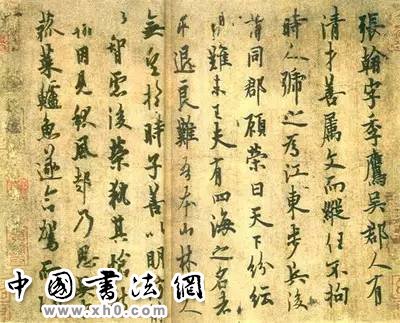 張翰字季鷹吳郡人有
清才善屬文而縱任不拘
時人號之為江東步兵後
謂同郡顧榮曰天下紛紜
禍難未已夫有四海之名者
求退良難吾本山林間人
無望於時子善以明防
以智慮後榮執其
翰因見秋風起乃思
菰菜鱸魚遂命駕而
中國書法網
www.xh0.com